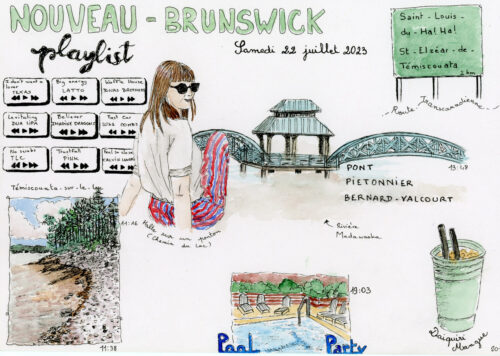 NOUVEAU - BRUNSWICK
playlist
Samedi 22 juillet 2023
Saint-Louis-
du-Ha! Ha!
St-Elzéar-de-
Témiscouata
2 km
- Route Transcanadienne -
I don't want a
lover
TEXAS
Big energy
LATTO
Waffle House
JONAS BROTHERS
Levitating
DUA LIPA
Believer
IMAGINE DRAGONS
Fast Car
LUKE COMBS
No scrubs
TLC
Trustfall
PINK
CALVIN HARRIS
Témiscouata-sur-le-lac
11:38
11:16 Halte sur un ponton
(Chemin du Lac)
PONT
PIETONNIER
BERNARD-VALCOURT
Rivière
Madawaska
19:03
Pool Party
Daiquiri
Mangue